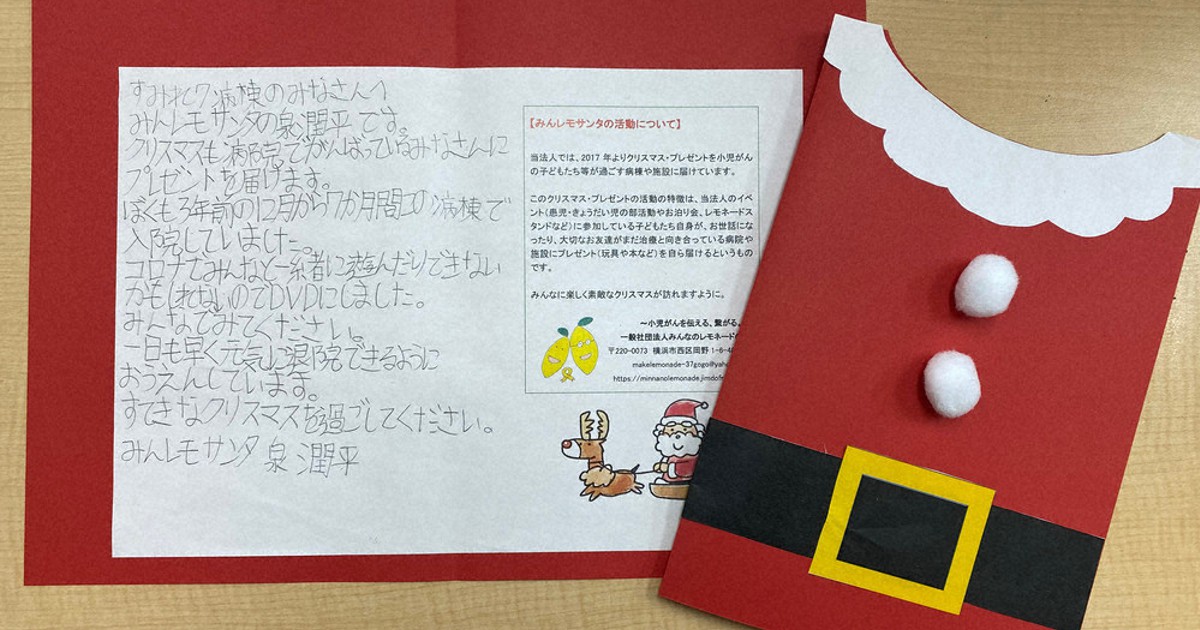 すみれ7病棟のみなさんへ
みんレモサンタの泉潤平です。
クリスマスも病院でがんばっているみなさんに
プレゼントを届けます。
ぼくも3年前の12月から7か月間この病棟で
入院していました。
コロナでみんなと一緒に遊んだりできない
かもしれないのでDVDにしました。
みんなでみてください。
一日も早く元気に退院できるように
おうえんしています。
すてきなクリスマスを過ごしてください。
みんレモサンタ 泉 潤平
【みんレモサンタの活動について】
当法人では、2017 年よりクリスマス・プレゼントを小児がん
の子どもたち等が過ごす病棟や施設に届けています。
このクリスマス・プレゼントの活動の特徴は、当法人のイベ
ント(患児・きょうだい児の部活動やお泊り会、レモネードス
タンドなど)に参加している子どもたち自身が、お世話にな
ったり、大切なお友達がまだ治療と向き合っている病院や
施設にプレゼント(玩具や本など)を自ら届けるというもの
です。
みんなに楽しく素敵なクリスマスが訪れますように。
~小児がんを伝える、繋がる。
一般社団法人みんなのレモネードの
〒220-0073 横浜市西区岡野 1-6-4
makelemonade-37gogo@yaho
https://minnanolemonade.jimdofr